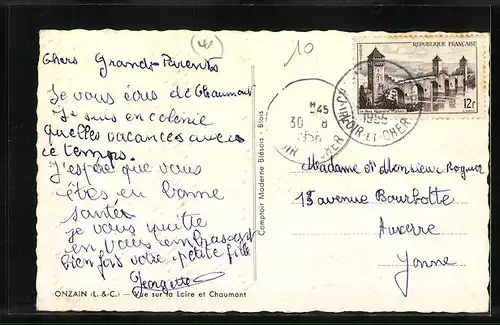 chers Grands Parents
Je vous écris de Chaumont
Je suis en colonie
quelles vacances avec
ce temps.
J'espère que vous
êtes en bonne
santée
je vous quitte
en vous embrassant
bien fort votre petite fille
Georgette
ONZAIN (L.-&-C.) — Vue sur la Loire et Chaumont
Comptoir Moderne Blésois - Blois
10
REPUBLIQUE FRANÇAISE
12f
H -45
30 8
1956
1956
LOIR-ET-CHER
Madame et Monsieur
18 avenue Bourbotte
Auxerre
Yonne